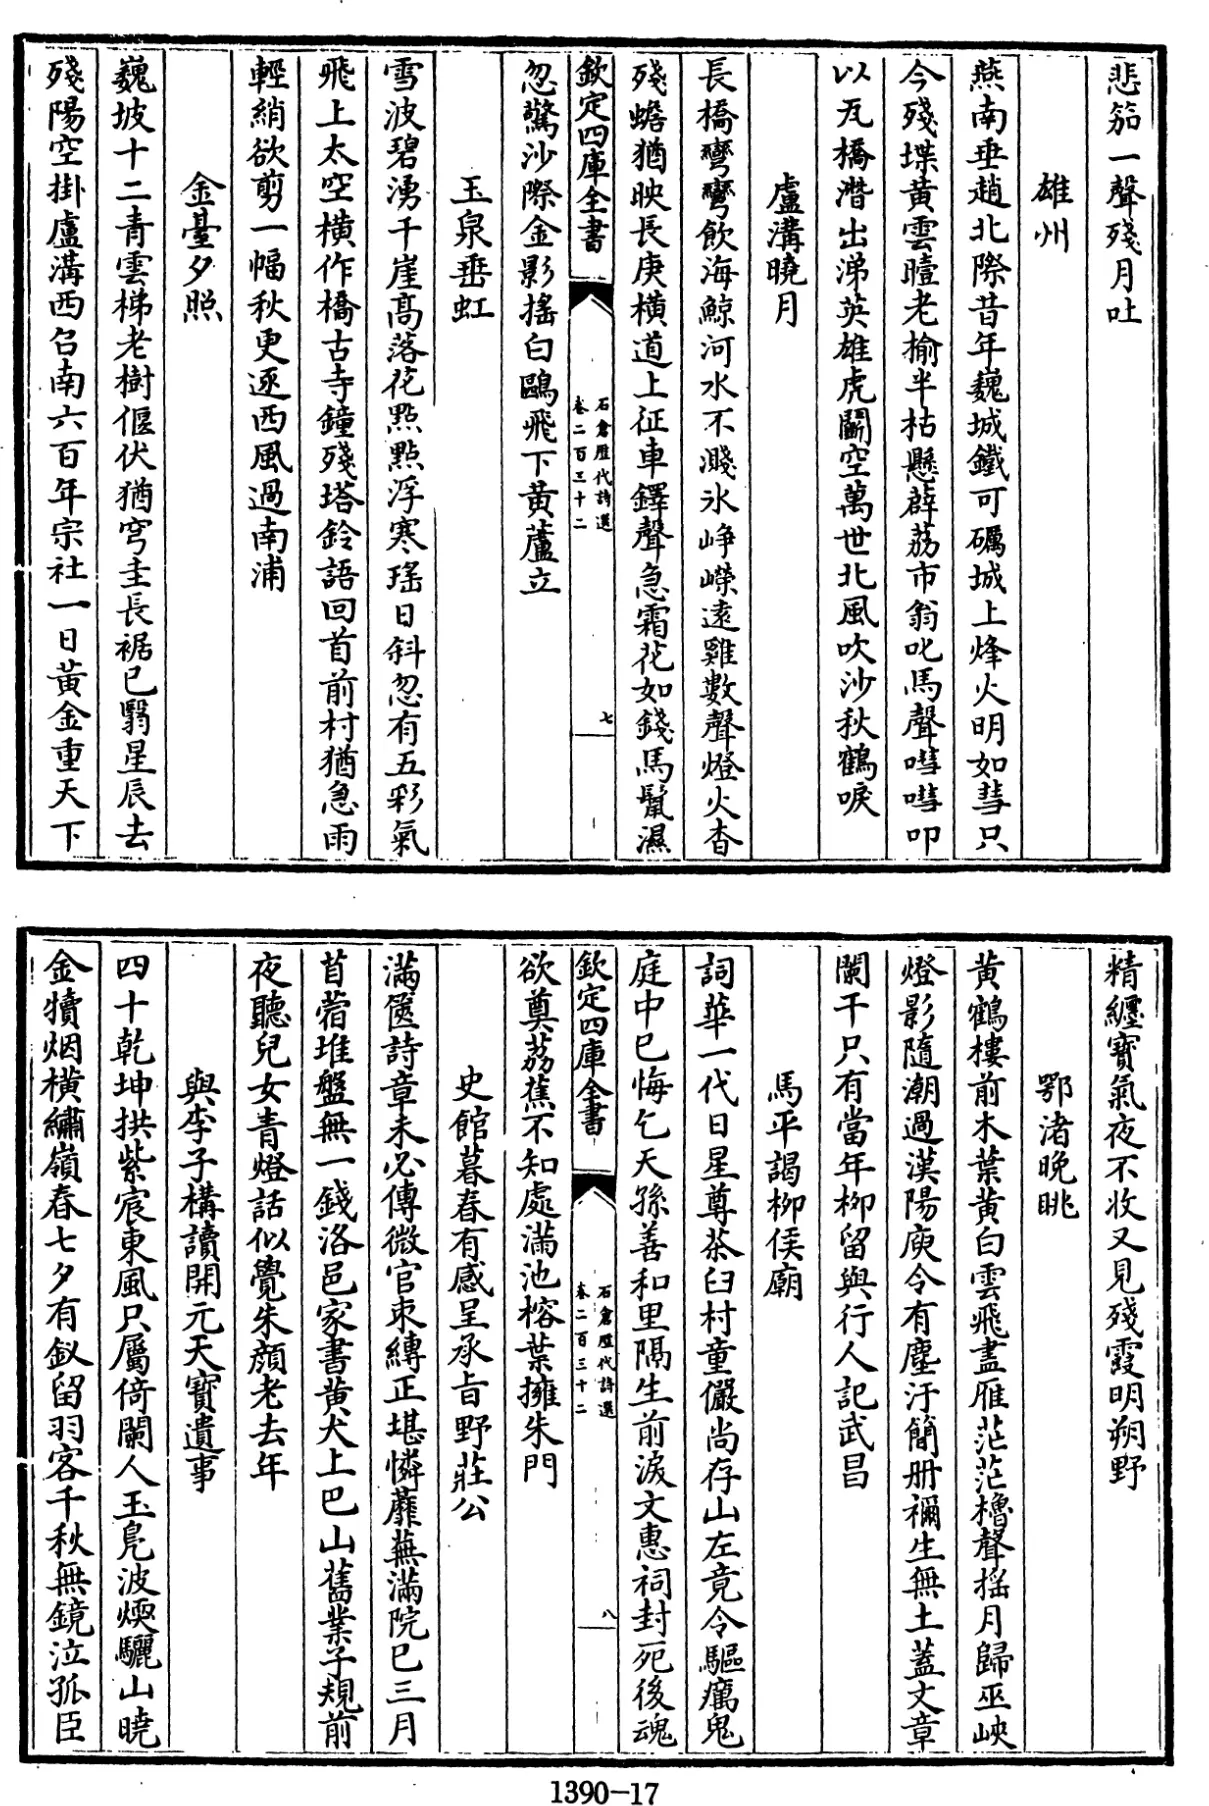 悲笳一聲殘月吐
雄州
燕南垂趙北際昔年巍城鐵可礪城上烽火明如彗只
今殘堞黄雲曀老榆半枯懸薜荔市翁叱馬聲嘒嘒叩
以瓦橋潛出涕英雄虎鬬空萬世北風吹沙秋鶴唳
盧溝曉月
長橋彎彎飲海鯨河水不濺氷崢嶸遠雞數聲燈火杳
殘蟾猶映長庚橫道上征車鐸聲急霜花如錢馬鬛濕
欽定四庫全書
石倉歷代詩選
卷二百三十二
七
忽驚沙際金影搖白鷗飛下黄蘆立
玉泉垂虹
雪波碧湧千崖高落花點點浮寒瑤日斜忽有五彩氣
飛上太空橫作橋古寺鐘殘塔鈴語回首前村猶急雨
輕綃欲剪一幅秋更逐西風過南浦
金臺夕照
巍坡十二青雲梯老樹偃伏猶穹圭長裾已翳星辰去
殘陽空掛盧溝西召南六百年宗社一日黄金重天下
精纒寳氣夜不收又見殘霞明朔野
鄂渚晚眺
黄鶴樓前木葉黄白雲飛盡雁茫茫櫓聲摇月歸巫峽
燈影隨潮過漢陽庾令有塵汙簡册禰生無土蓋文章
闌干只有當年柳留與行人記武昌
馬平謁柳侯廟
詞華一代日星尊茶臼村童儼尚存山左竟令驅癘鬼
庭中已悔乞天孫善和里隔生前淚文惠祠封死後魂
欽定四庫全書
石倉歷代詩選
卷二百三十二
八
欲奠荔蕉不知處滿池榕葉擁朱門
史館暮春有感呈承旨野莊公
滿篋詩章未必傳微官束縛正堪憐蘼蕪滿院已三月
苜蓿堆盤無一錢洛邑家書黄犬上巴山舊業子規前
夜聽兒女青燈話似覺朱顔老去年
與李子構讀開元天寳遺事
四十乾坤拱紫宸東風只屬倚闌人玉鳬波煖驪山曉
金犢烟橫繡嶺春七夕有釵留羽客千秋無鏡泣孤臣
1390-17